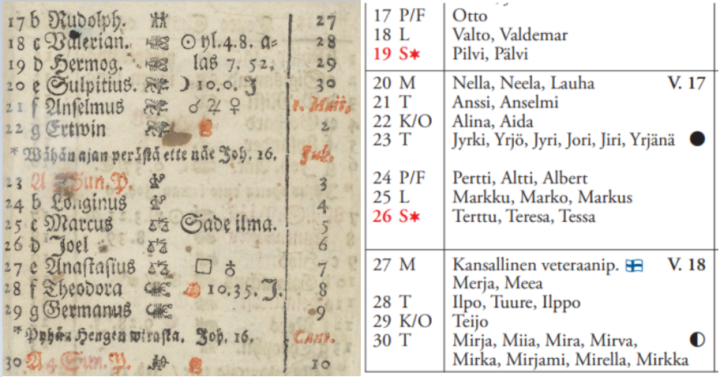 17 b Rudolph. 27
18 c Valerian. ☉ yl. 4. 8. a= 28
19 d Hermog. las 7. 52. 29
20 e Sulpitius. ☽ 10. 0. J 30
21 f Anselmus ♂ ♃ ♀ 1. Maij.
22 g Ertwin 2
* Wähän ajan peräsiä ette näe Joh. 16. Jub.
23 A Sun. P. 3
24 b Longinus 4
25 c Marcus Sade ilma. 5
26 d Joel 6
27 e Anastasius □ ♁ 7
28 f Theodora 10. 35. J. 8
29 g Germanus 9
* Pyhän Hengen wirasta. Joh. 16. Cant.
30 A 4 Sun. P. 10
17 P/F Otto
18 L Valto, Valdemar
19 S✶ Pilvi, Pälvi
20 M Nella, Neela, Lauha V. 17
21 T Anssi, Anselmi
22 K/O Alina, Aida
23 T Jyrki, Yrjö, Jyri, Jori, Jiri, Yrjänä ●
24 P/F Pertti, Altti, Albert
25 L Markku, Marko, Markus
26 S✶ Terttu, Teresa, Tessa
27 M Kansallinen veteraanip. V. 18
Merja, Meea
28 T Ilpo, Tuure, Ilppo
29 K/O Teijo
30 T Mirja, Miia, Mira, Mirva, ◐
Mirka, Mirjami, Mirella, Mirkka